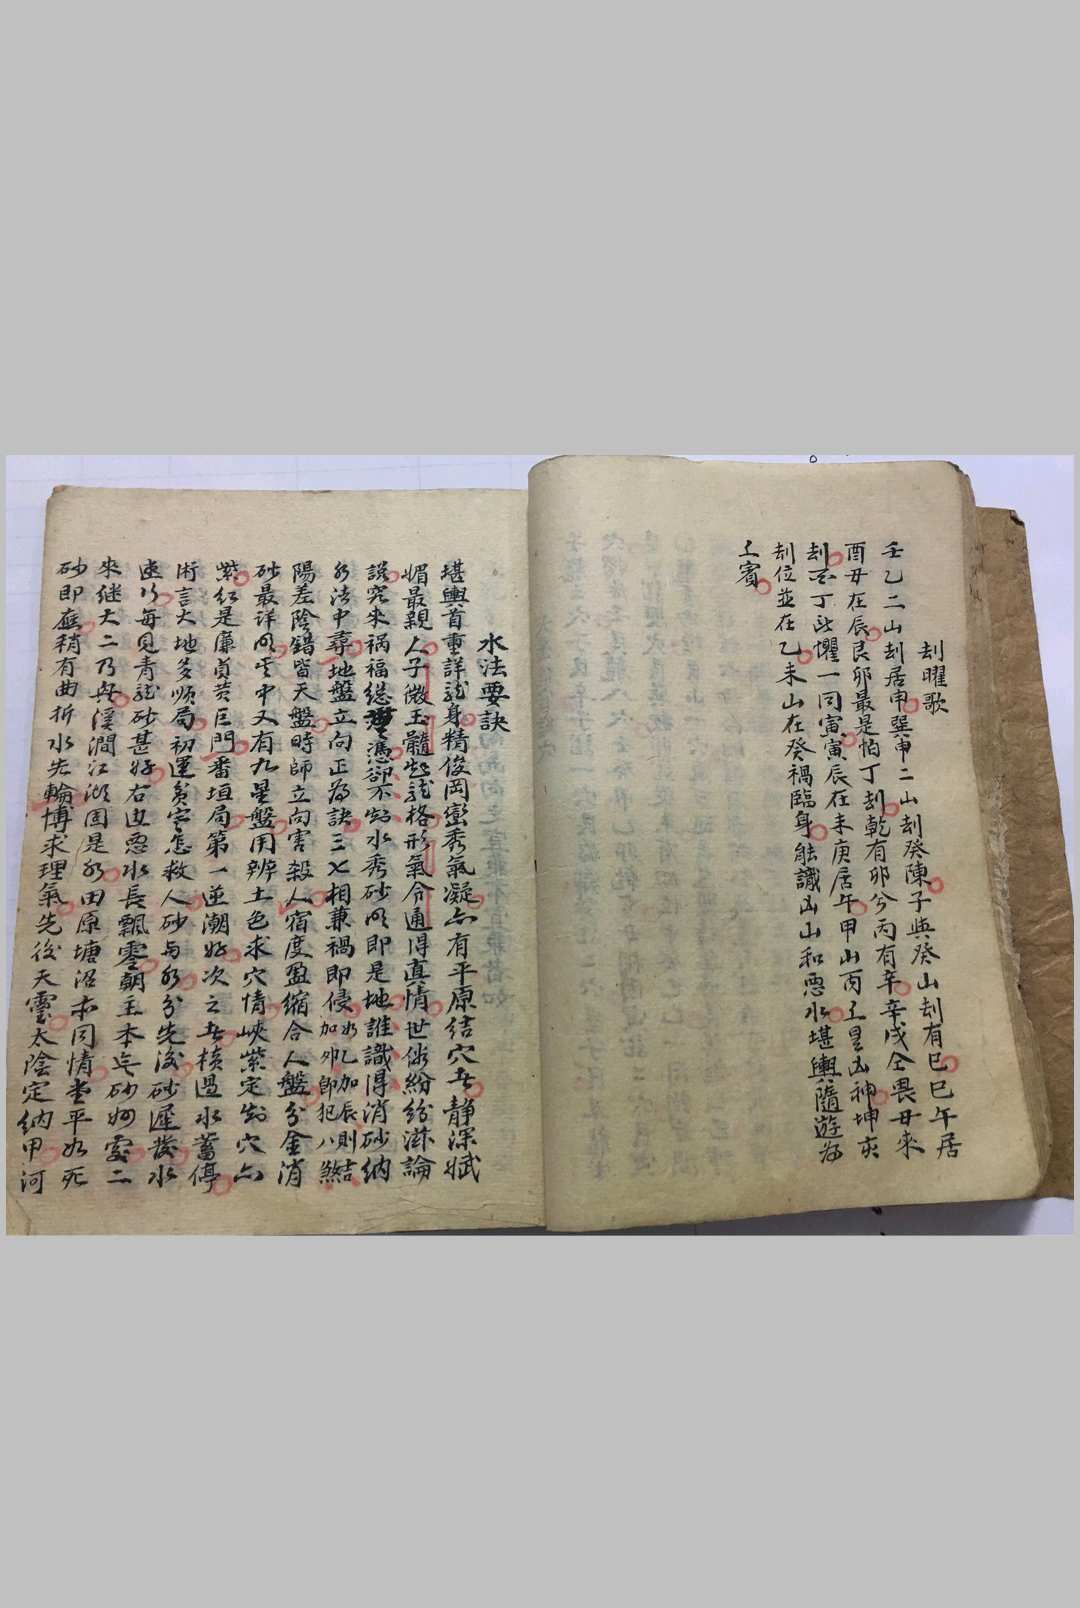 刦曜歌
壬乙二山刦居申巽申二山刦癸陳子與癸山刦有巳巳午居
酉丑在辰艮卯最是怕丁刦乾有卯兮丙有辛辛戌仝畏丑來
刦丁此懼一同寅寅辰在未庚居午甲山丙上是凶神坤亥
刦位並在乙未山在癸禍臨身能識凶山和悪水堪輿隨遊為
上賓
水法要訣
堪輿首重詳龍身精俊岡巒秀氣凝亦有平原結穴者靜深斌
媚最親人子微玉髓龍格形氣合通得真情世俗紛紛滋論
說究來禍福總憑卻不知水秀砂明即是地誰識得消砂納
水法中尋地盤立向正為訣三七相兼禍即侵如乙加辰則結加卯即犯八煞
陽差陰錯皆天盤時師立向害殺人宿度盈縮合人盤分金消
砂最詳明其中又有九星盤用辨土色求穴情峽紫定知穴亦
紫紅是廉貞黃巨門番垣局第一逆潮好次之者橫過水蓄停
術言大地多順局初運貧窘怎救人砂与水分先後砂遲發水
速以每見青龍砂甚好右邊悪水長飄零朝主本旺砂如處二
來继大二乃與溪澗江湖固是水田原塘沼亦同情堂平如死
砂即應稍有曲折水先輪博求理氣先後天靈太陰定納甲河